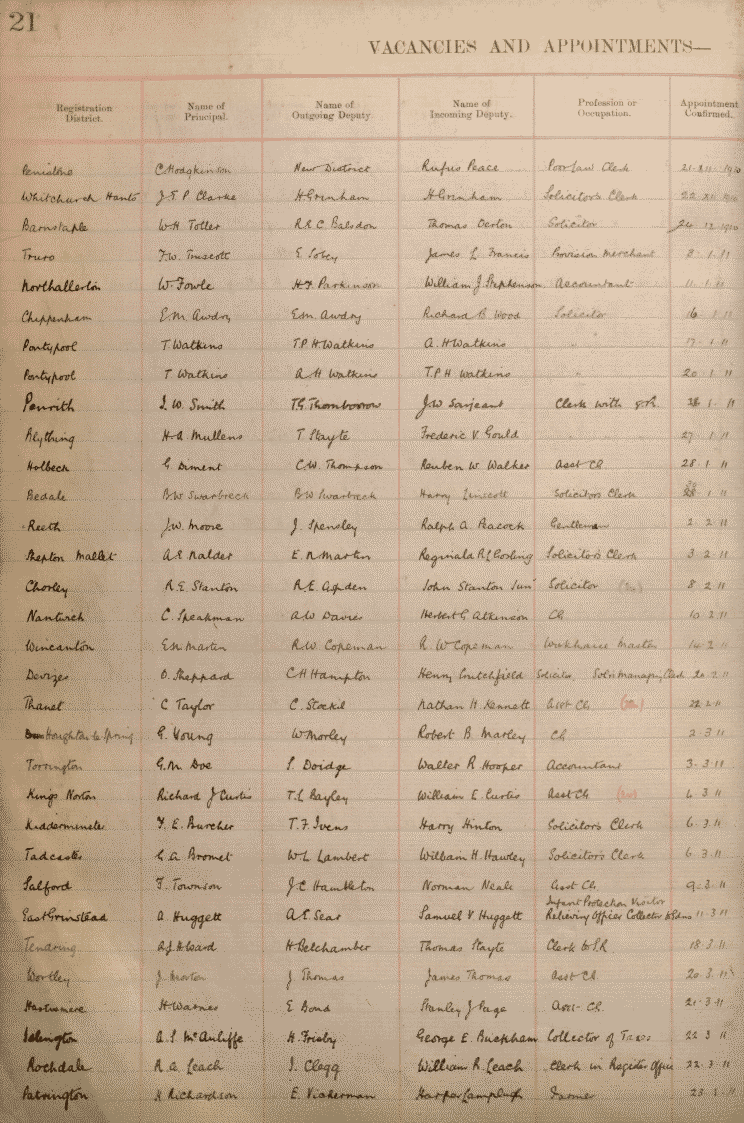 21
VACANCIES AND APPOINTMENTS—
Registration District. Name of Principal. Name of Outgoing Deputy. Name of Incoming Deputy. Profession or Occupation. Appointment Confirmed.
Penistone C Hodgkinson New District Rufus Peace Poor Law Clerk 21·XII·1910
Whitchurch Hants J T P Clarke H Grinham H Grinham Solicitor's Clerk 22 XII 1910
Barnstaple W H Toller R E C Balsdon Thomas Oerton Solicitor 24 12 1910
Truro F. W. Truscott E Sobey James L Francis Provision Merchant 1 11
Northallerton W. Fowle H F. Parkinson William J Stephenson Accountant 11 1 11
Chippenham E. M. Awdry E M. Awdry Richard B Wood Solicitor 16 1 11
Pontypool T Watkins T P H Watkins A. H Watkins " 17 1 11
Pontypool T Watkins A H Watkins T. P H Watkins " 20 1 11
Penrith J. W. Smith T G Thomborrow J W Sarjeant Clerk with 1 11
H. A Mullens T Stayte Frederic V Gould 27 1 11
Holbeck G Diment C. W. Thompson Reuben W Walker Asst Ch 28 1 11
Bedale B W Swarbreck B W Swarbreck Harry Linscott Solicitors Clerk 28 1 11
Reeth J. W. Moore J. Spensley Ralph A Peacock Gentleman 2 2 11
Shepton Mallet A. E Nalder E. N Martin Reginald P L Gosling Solicitor's Clerk 3 2 11
Chorley R. E Stanton R. E. Aspden John Stanton Junr Solicitor 8 2 11
Nantwich C. Speakman A W Davies Herbert G Atkinson Ch 10 2 11
Wincanton E N Martin R. W. Copeman R. W Copeman Workhouse Master 14 2 11
Devizes O. Sheppard C H Hampton Henry Critchfield Solicitor, Solrs Managing Clerk 20 2 11
Thanet C Taylor C. Stockil Nathan H Kennett Asst Ch 22 2 11
Houghton le Spring G. Young W Morley Robert B Marley Ch 2 3 11
Torrington G. M. Doe S. Doidge Walter R Hooper Accountant 3·3·11
Kings Norton Richard J Curtis T. L Bayley William E Curtis Asst Ch 6 3 11
Kidderminster F. E. Burcher T. F Ivens Harry Hinton Solicitor's Clerk 6·3·11
Tadcaster G. A Bromet W L Lambert William H. Hawley Solicitor's Clerk 6 3 11
Salford F. Townson J. C Hambleton Norman Neale Asst Ch 9·3·11
Infant Protection Visitor
East Grinstead A Huggett A E Sear Samuel V Huggett Relieving Officer Collector to Gdns 11·3·11
Tendring A J H Ward H Belchamber Thomas Stayte Clerk to S.R 18·3·11
Wortley J Morton J Thomas James Thomas Asst Ch 20·3·11
Hartismere H Warnes E Bond Stanley J Page Asst Ch 21·3·11
Islington A. S McAuliffe H. Frisby George E. Buckham Collector of Taxes 22 3 11
Rochdale R. A Leach J. Clegg William R Leach Clerk in Register Office 22·3·11
Patrington H Richardson E. Vickerman Harper Lamplugh Farmer 23·3·11